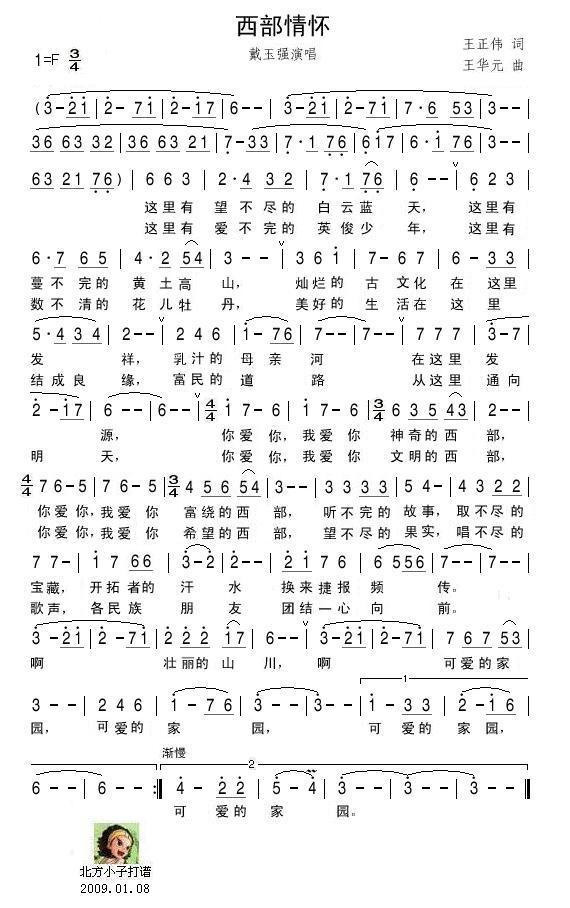 西部情怀
戴玉强演唱
王正伟 词
王华元 曲
1=F 3/4
(3-21|2-71|2-17|6--|3-21|2-71|7·6 53|3--|
36 63 32|36 63 21|7-33|7·1 76|617|6·1 76|3--|
63 21 76)|6 6 3|2·4 32|7·1 76|6--|6 2 3|
这里有 望不尽的 白云蓝 天， 这里有
这里有 爱不完的 英俊少 年， 这里有
6·7 65|4·2 54|3--|3 6 1|7·6 7 2|3 1 7|
蔓不完的 黄土高 山， 灿烂的 古文化 在这里
数不清的 花儿牡 丹， 美好的 生活在 这里
5·4 3 4|2--|2 4 6|1-76|7--|7--|7 7 7|3-7|
发 祥， 乳汁的 母亲河 在这里 发
结成良 缘， 富民的 道 路 从这里 通向
2-17|6--|6--|4/4 1 7-6|1 7-6|3/4 6 3 5 43|2--|
源， 你爱你，我爱你 神奇的西 部，
明 天， 你爱你，我爱你 文明的西 部，
4/4 7 6-5|7 6-5|3/4 4 5 6 54|3--|3 3 3 3|5 4·|4 3 2 2|
你爱你，我爱你 富绕的西 部， 听不完的 故事，取不尽的
你爱你，我爱你 希望的西 部， 望不尽的 果实，唱不尽的
7 7-|1 7 66|3-2|2--|2 1 7 6|6 556|7--|7--|
宝藏，开拓者的 汗 水 换来捷报 频 传。
歌声，各民族 朋 友 团结一心向 前。
3-21|2-71|2 2 2 17|6--|3-21|2-71|7 6 7 53|
啊 壮丽的山 川，啊 可爱的家
3--|2 4 6|1-76|3--|3--|1 1-33|2-16|
园， 可爱的 家 园， 可爱的 家园，
渐慢
6--|6--:|2 4-22|5-4|3--|3--|
可 爱的 家 园。
北方小子打谱
2009.01.08